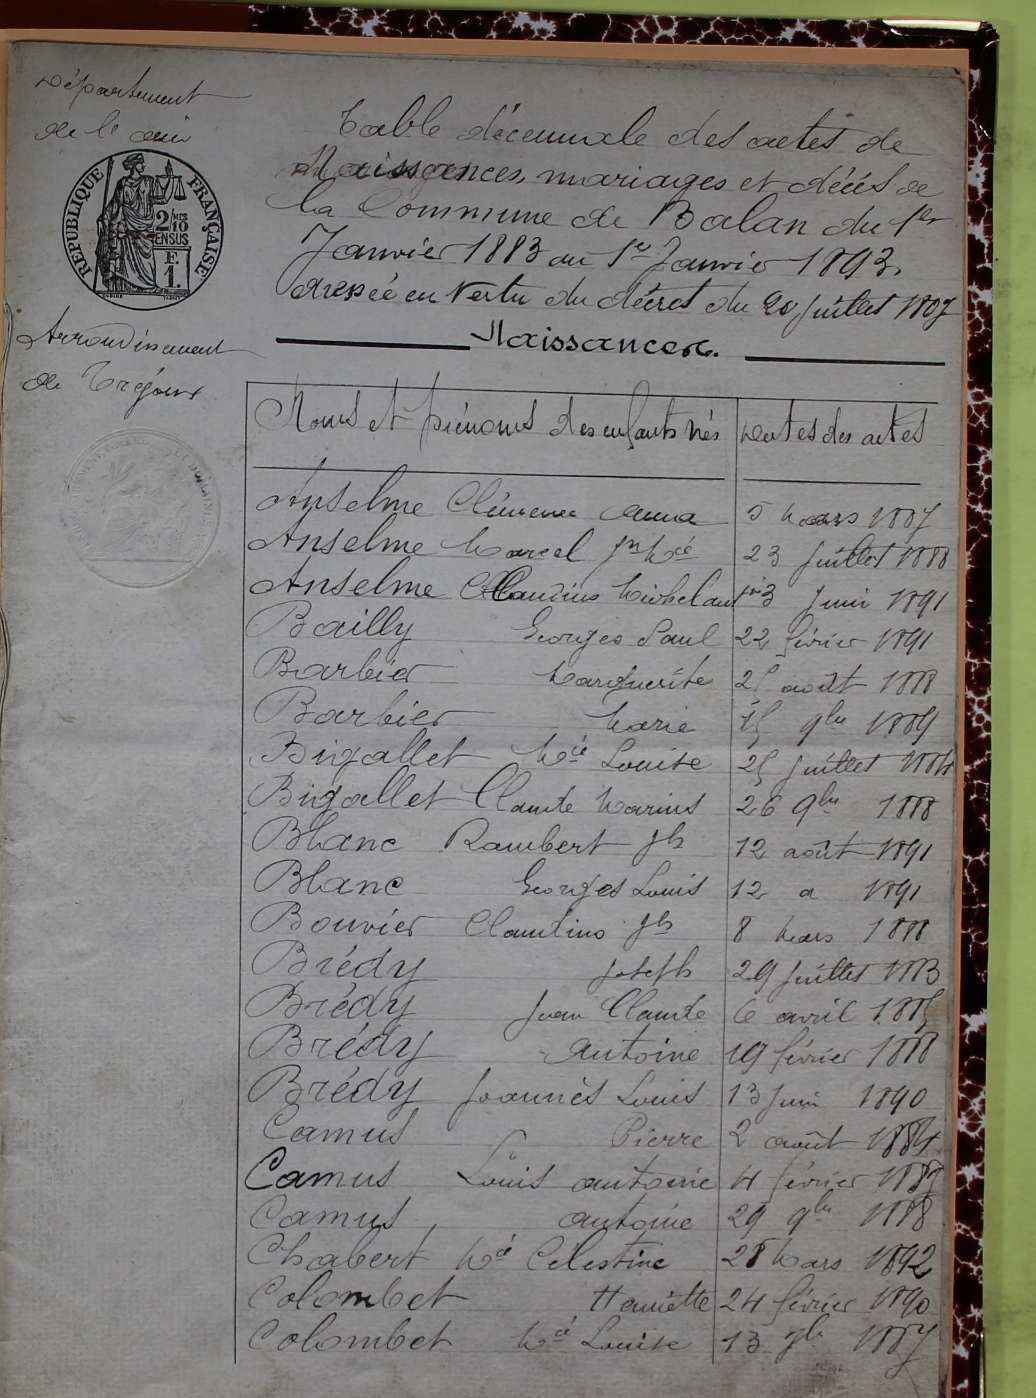 Département
de l'ain
RÉPUBLIQUE FRANÇAISE
2/10 EN SUS
F. 1.
Arrondissement
de Trévoux
Table décennale des actes de
Naissances, mariages et décès de
la Commune de Balan du 1er
Janvier 1883 au 1er Janvier 1893.
dressée en vertu du décret du 20 juillet 1807
Naissances.
Noms et prénoms des enfants nés Dates des actes
Anselme Clémence Anna 5 Mars 1887
Anselme Marcel Jn Mié 23 juillet 1888
Anselme Claudius Michel 3 Juin 1891
Bailly Georges Paul 22 février 1891
Barbier Marguerite 25 août 1888
Barbier Marie 15 9bre 1889
Bigallet Mié Louise 25 juillet 1884
Bigallet Claude Marius 26 9bre 1888
Blanc Rambert Jh 12 août 1891
Blanc Georges Louis 12 a 1891
Bouvier Claudius Jh 8 Mars 1888
Brédy Joseph 29 juillet 1883
Brédy Jean Claude 6 avril 1885
Brédy Antoine 19 février 1888
Brédy Joannès Louis 13 juin 1890
Camus Pierre 2 août 1884
Camus Louis antoine 4 février 1887
Camus antoine 29 9bre 1888
Chabert Mié Célestine 28 Mars 1892
Colombet Henriette 24 février 1890
Colombet Mié Louise 13 1887